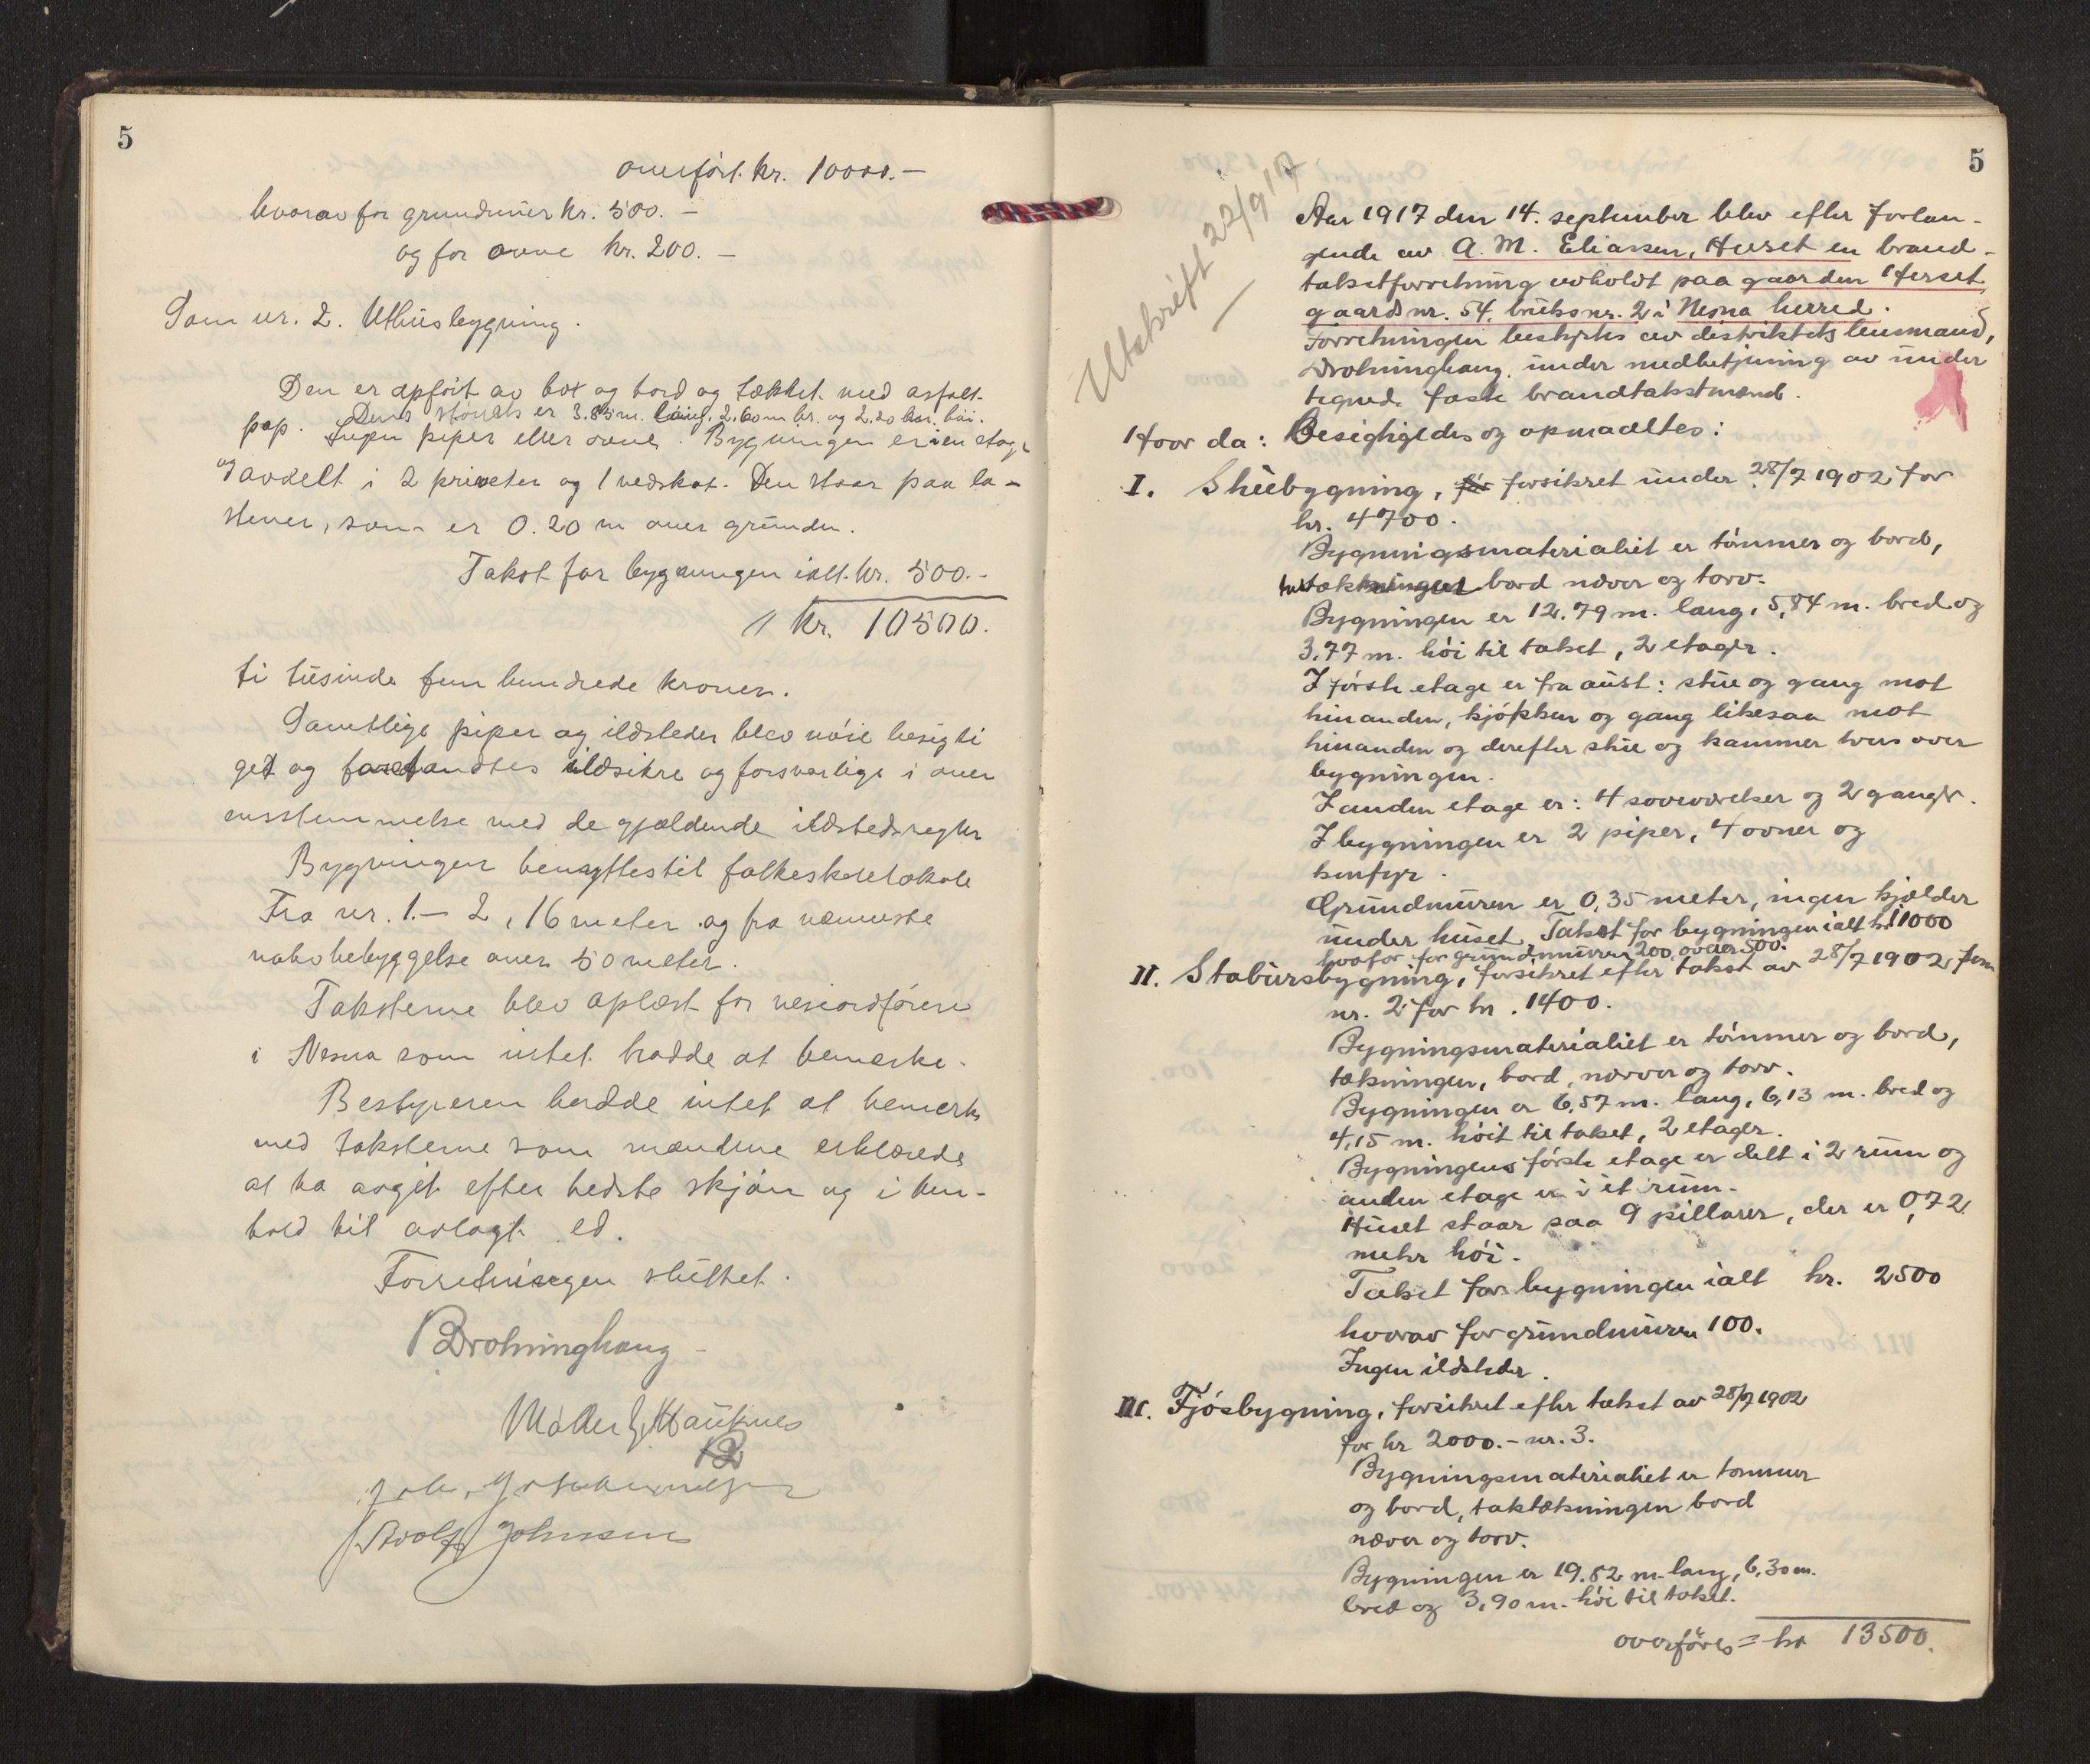 5
overført kr. 10000.—
hvorav for grundmur kr. 500.—
og for ovne kr. 200.—
Som nr. 2. Uthusbygning.
Den er opført av box og bord og tækket med asfalt
Dens størrels er 3.85 m. lang, 2.60 m br. og 2.20 m. høi.
pap. Ingen piper eller ovne. Bygningen er i en etage
og avdelt i 2 priveter og 1 vedskot. Den staar paa la-
stener, som er 0.20 m over grunden.
Takst for bygningen ialt kr. 500.-
kr. 10500.
ti tusinde fem hundrede kroner.
Samtlige piper og ildsteder blev nøie besigti
get og forefandtes ildsikre og forsvarlige i over
ensstemmelse med de gjældende ildstedsregler
Bygningen benyttes til folkeskolelokale
Fra nr. 1.— 2, 16 meter og fra nærmeste
nabobebyggelse over 50 meter.
Taksterne blev oplæst for viseordføren
i Nesna som intet hadde at bemerke.
Bestyreren hadde intet at bemerke
med taksterne som mændene erklærede
at ha avgit efter bedste skjøn og i hen-
hold til avlagt ed.
Forretningen sluttet.
Dronninghaug
Møller Hauknes
Adolf Johnsen
5
Utskrift 22/9 17
Aar 1917 den 14. september blev efter forlan-
gende av A. M. Eliassen, Huset en brand-
takstforretning avholdt paa gaarden Herset
gaards nr. 54, bruksnr. 2 i Nesna herred.
Forretningen bestyrtes av distriktets lensmand,
Dronninghaug, under medbetjening av under
tegnede faste brandtakstmænd.
Hvor da: Besigtigedes og opmaaltes:
I. Stuebygning, før forsikret under 28/7 1902 for
kr. 4700.
Bygningsmaterialiet er tømmer og bord,
taktækningen bord næver og torv.
Bygningen er 12.79 m. lang, 5,84 m. bred og
3,77 m. høi til taket, 2 etager.
I første etage er fra aust: stue og gang mot
hinanden, kjøkken og gang likesaa mot
hinanden og derefter stue og kammer tvers over
bygningen.
I anden etage er: 4 soveværelser og 2 ganger.
I bygningen er 2 piper, 4 ovner og
komfyr.
Grundmuren er 0,35 meter, ingen kjælder
under huset. Takst for bygningen ialt kr 11000
hvorav for grundmuren 200, ovner 500.
II. Stabursbygning, forsikret efter takst av 28/7 1902 som
nr. 2 for kr. 1400.
Bygningsmaterialiet er tømmer og bord,
tækningen, bord, næver og torv.
Bygningen er 6,57 m. lang, 6,13 m. bred og
4,15 m. høit til taket, 2 etager.
Bygningens første etage er delt i 2 rum og
anden etage er i et rum.
Huset staar paa 9 pillarer, der er 0,72
meter høi.
Takst for bygningen ialt kr. 2500
hvorav for grundmuren 100.
Ingen ildsteder.
III. Fjøsbygning, forsikret efter takst av 28/7 1902
for kr 2000.- nr. 3.
Bygningsmaterialiet er tømmer
og bord, taktækningen bord
næver og torv.
Bygningen er 19.82 m. lang, 6,30 m.
bred og 3,90 m. høi til taket.
overføres = kr 13500.